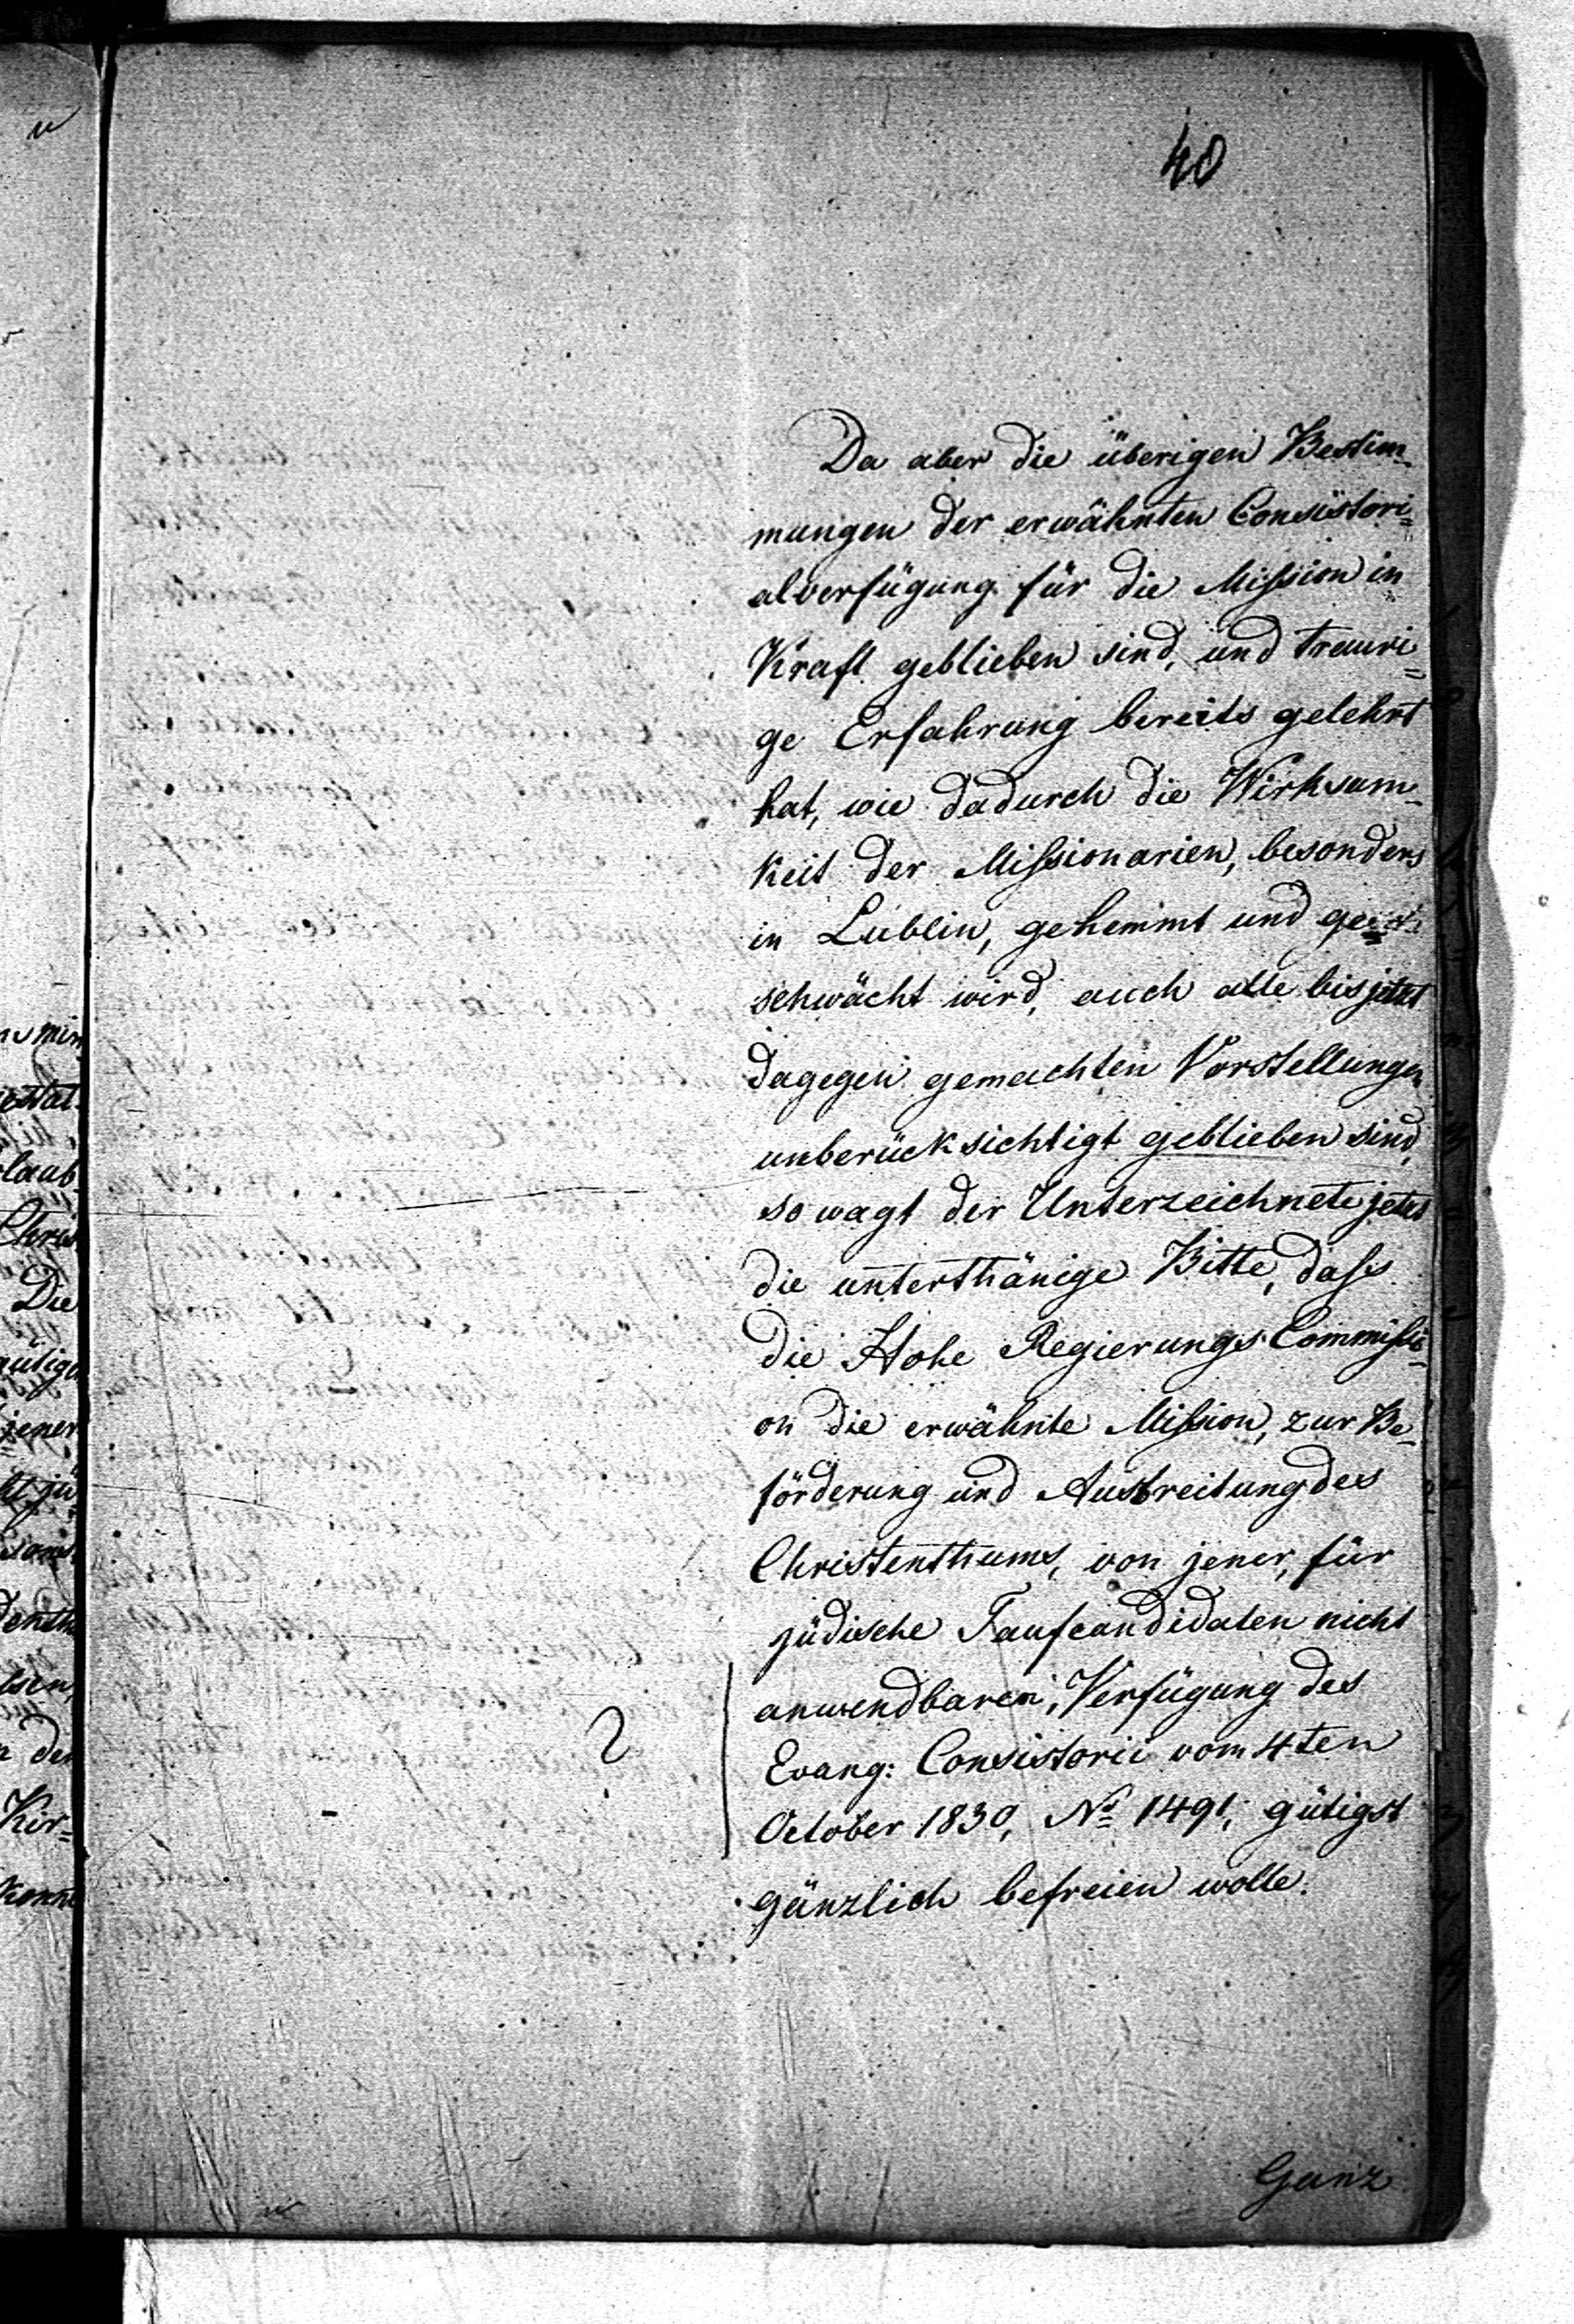 40
Da aber die überigen Bestim-
mungen der erwähnten Consistori=
alverfügung für die Mißion in
Kraft geblieben sind, und trauri=
ge Erfahrung bereits gelehrt
hat, wie dadurch die Wirksam-
keit der Mißionarien, besonders
in Lublin, gehemmt und ge=
schwächt wird, auch alle bis jetzt
dagegen gemachten Vorstellungen
unberücksichtigt geblieben sind,
so wagt der Unterzeichnete jetzt
die unterthänige Bitte, daß
die Hohe Regierungs Commißi-
on die erwähnte Mißion, zur Be-
förderung und Ausbreitung des
Christenthums, von jener, für
jüdische Taufcandidaten nicht
anwendbaren, Verfügung des
Evang: Consistorii vom 4ten
October 1830, No 1491, gütigst
gänzlich befreien wolle.
?
Ganz
laub-
Chris
Die
jener
Kir=